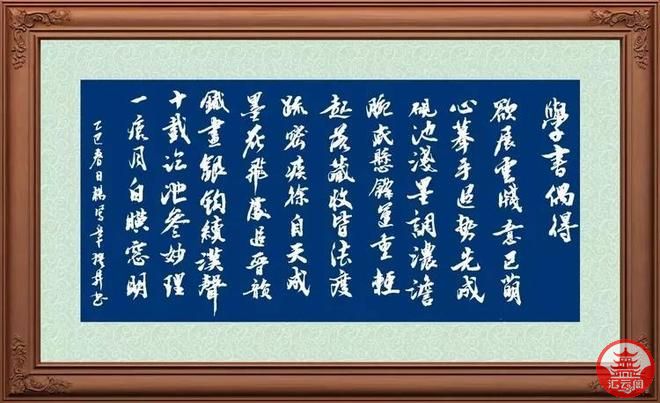 學書偶得
欲展雲牋意已萌
心摹手追勢先成
硯池淺墨調濃澹
腕底懸鋒運重輕
起落藏收皆法度
疏密疾徐自天成
墨花飛處追晉韻
鐵畫銀鈎續漢聲
十載臨池參妙理
一痕月白暎窓明
乙巳春日楊 撰并書
汇云阁